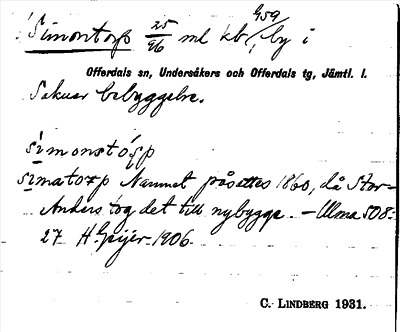 Simontorp 25/96 ml kb 959/1, by i
Offerdals sn, Undersåkers och Offerdals tg, Jämtl. l.
Saknar bebyggelse.
simonstórp
simatorp Namnet påsattes 1860, då Stor-
Anders tog det till nybygge. – Ulma 508:
27 H. Geijer 1906.
C. LINDBERG 1931.